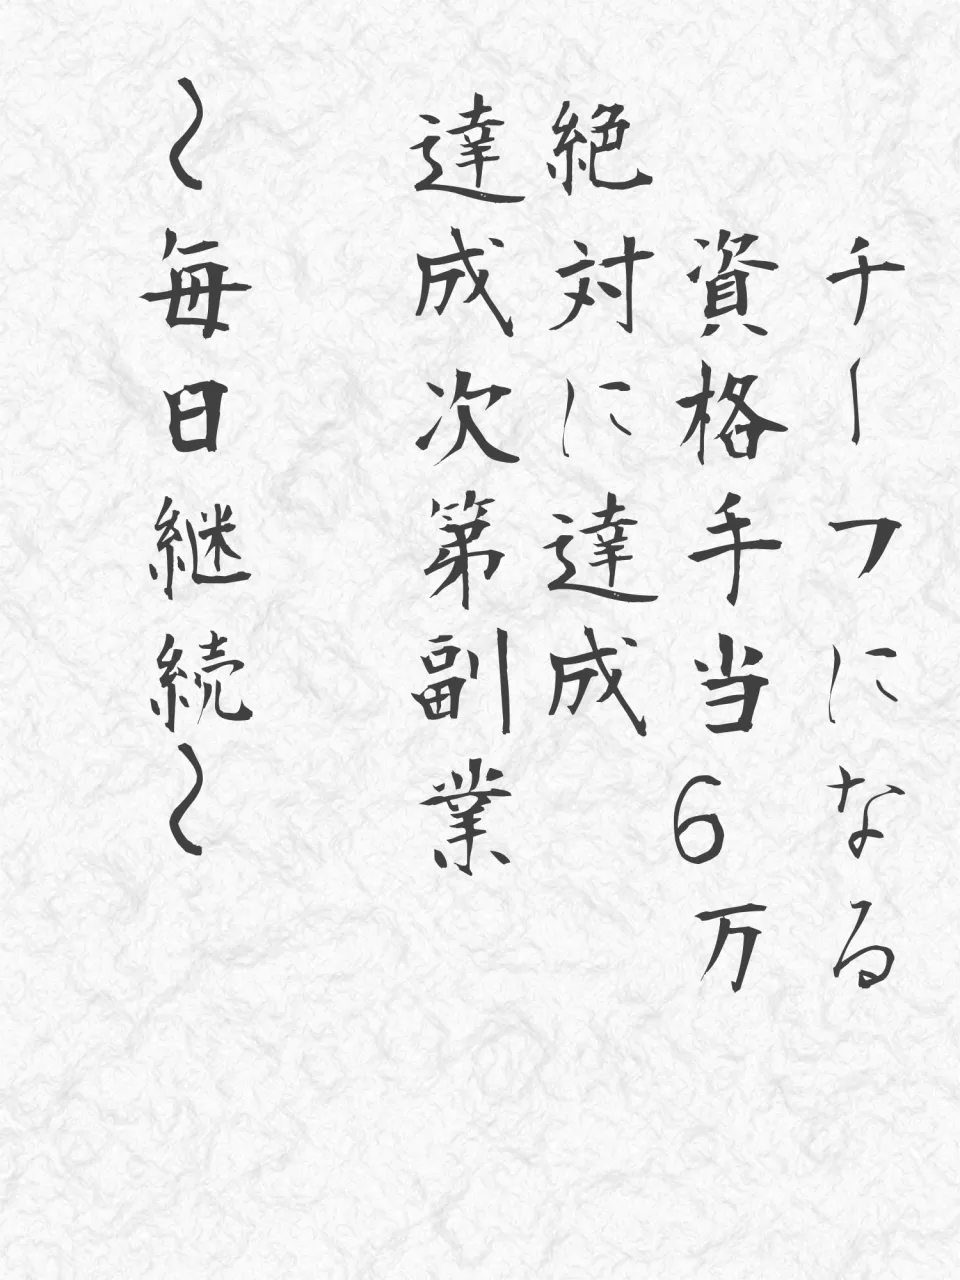 チーフになる
資格手当6万
絶対に達成
達成次第副業
〜毎日継続〜